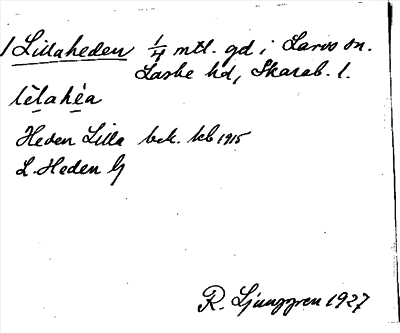 1 Lillaheden 1/4 mtl. gd i Larvs sn.
Laske hd, Skarab. l.
lìlahéa
Heden Lilla bek. kb 1915
L. Heden G
R. Ljunggren 1927